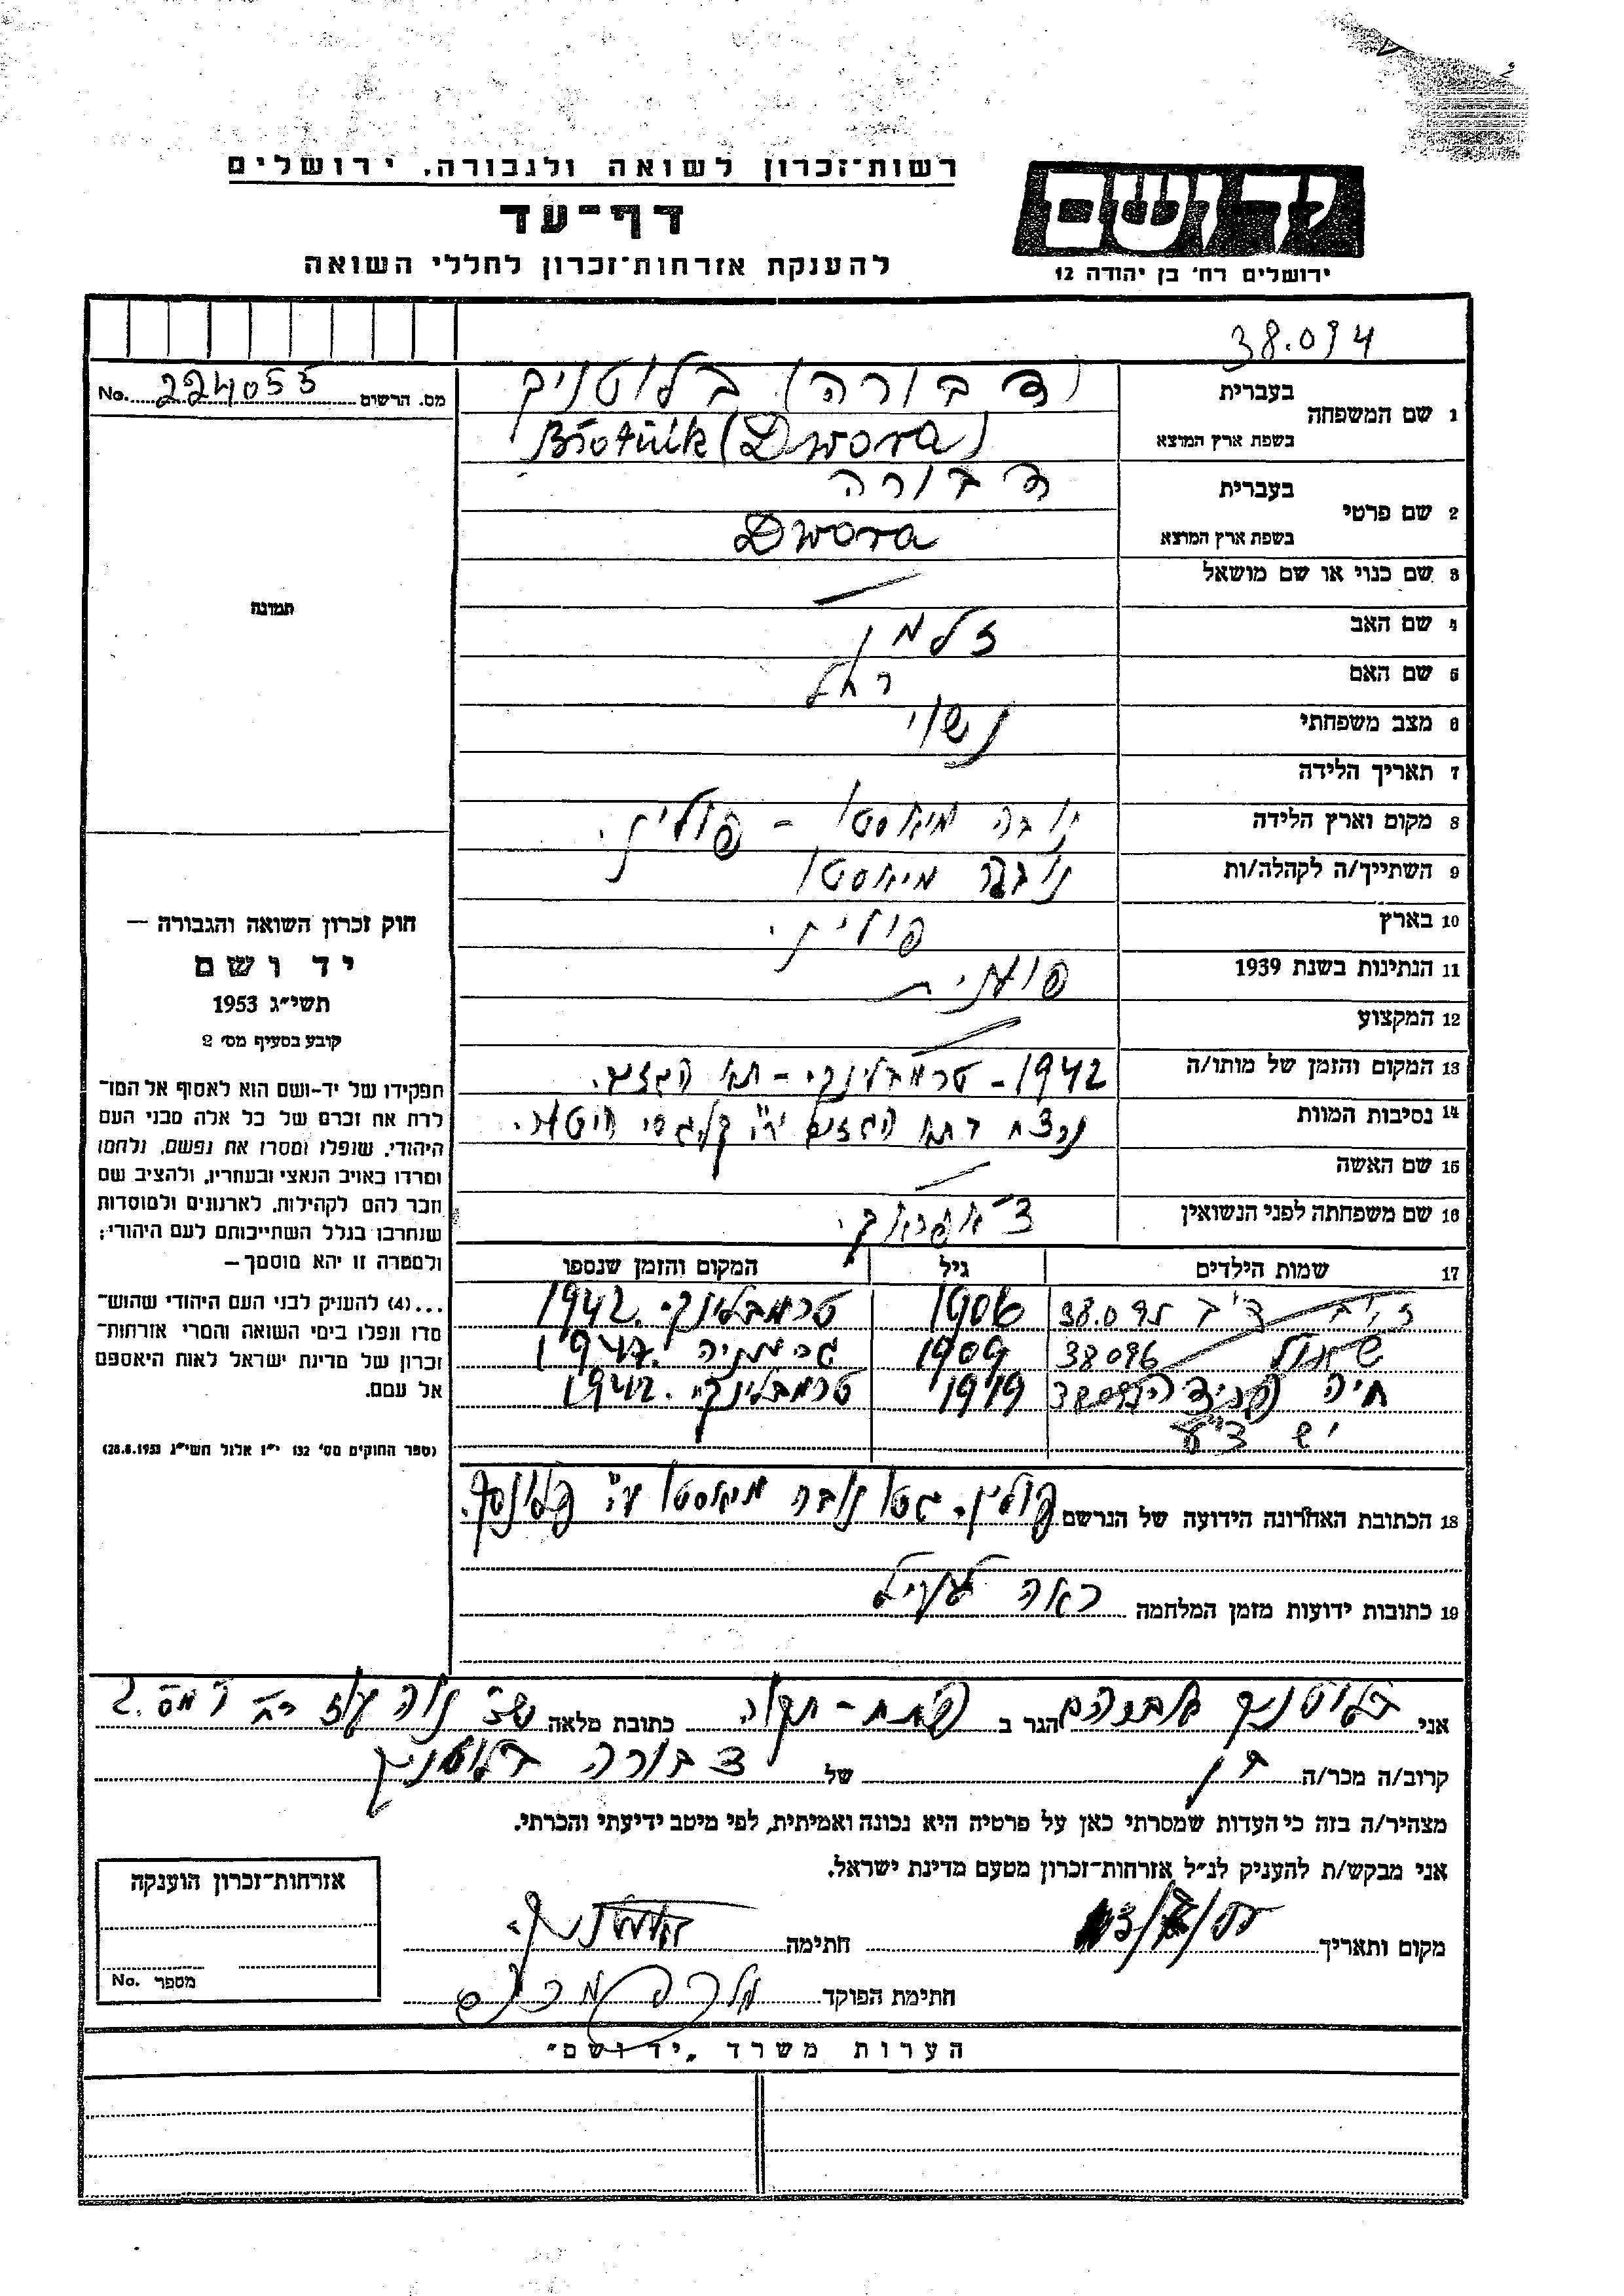 רשות־זכרון לשואה ולגבורה, ירושלים
דף־עד
להענקת אזרחות־זכרון לחללי השואה
יד ושם
ירושלים רח' בן יהודה 12
38.094
מס. הרשום 224055 No.
1 שם המשפחה
בעברית (דבורה) בלוטניק
בשפת ארץ המוצא (Dwora)
2 שם פרטי
בעברית דבורה
בשפת ארץ המוצא Dwora
3 שם כנוי או שם מושאל —
4 שם האב זלמן
5 שם האם רחל
6 מצב משפחתי נשוי
7 תאריך הלידה
8 מקום וארץ הלידה נובה מיאסטו - פולין.
9 השתייך/ה לקהלה/ות נובה מיאסטו
10 בארץ פולין.
11 הנתינות בשנת 1939 פולנית
12 המקצוע —
13 המקום והזמן של מותו/ה 1942 - טרמבלינקי - תא הגזים.
14 נסיבות המוות נרצח בתא הגזים ע"י קלגסי היטלר.
15 שם האשה —
16 שם משפחתה לפני הנשואין
17 שמות הילדים גיל המקום והזמן שנספו
38.095 1906 טרמבלינקי. 1942
שאול 38096 1909
חיה 1919 טרמבלינקי. 1942
18 הכתובת האחרונה הידועה של הנרשם פולין. גטו נובה מיאסטו ע"י פלונסק.
19 כתובות ידועות מזמן המלחמה ראה לעיל
תמונה
חוק זכרון השואה והגבורה —
יד ושם
תשי"ג 1953
קובע בסעיף מס' 2
תפקידו של יד-ושם הוא לאסוף אל המו־
לדת את זכרם של כל אלה מבני העם
היהודי, שנפלו ומסרו את נפשם, נלחמו
ומרדו באויב הנאצי ובעוזריו, ולהציב שם
וזכר להם לקהילות, לארגונים ולמוסדות
שנחרבו בגלל השתייכותם לעם היהודי;
ולמטרה זו יהא מוסמך —
...(4) להעניק לבני העם היהודי שהוש־
מדו ונפלו בימי השואה והמרי אזרחות־
זכרון של מדינת ישראל לאות היאספם
אל עמם.
(ספר החוקים מס' 132 י"ז אלול תשי"ג 28.8.1953)
אני בלוטניק אברהם הגר ב פתח-תקוה כתובת מלאה
קרוב/ה מכר/ה בן של דבורה בלוטניק
מצהיר/ה בזה כי העדות שמסרתי כאן על פרטיה היא נכונה ואמיתית, לפי מיטב ידיעתי והכרתי.
אני מבקש/ת להעניק לנ"ל אזרחות־זכרון מטעם מדינת ישראל.
מקום ותאריך חתימה
חתימת הפוקד
אזרחות־זכרון הוענקה
מספר No.
הערות משרד „יד ושם"